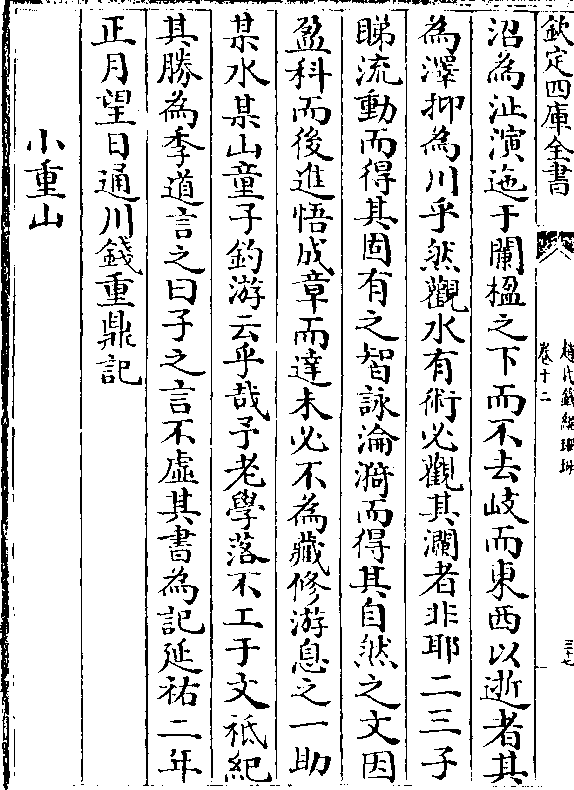 欽定四庫全書
趙氏鐵網珊瑚
卷十二
三十七
沼為沚演迤于闌楹之下而不去岐而東西以逝者其
為澤抑為川乎然觀水有術必觀其瀾者非耶二三子
睇流動而得其固有之智詠淪漪而得其自然之文因
盈科而後進悟成章而達未必不為藏修游息之一助
某水某山童子釣游云乎哉予老學落不工于文祗紀
其勝為季道言之曰子之言不虛其書為記延祐二年
正月望日通川錢重鼎記
小重山